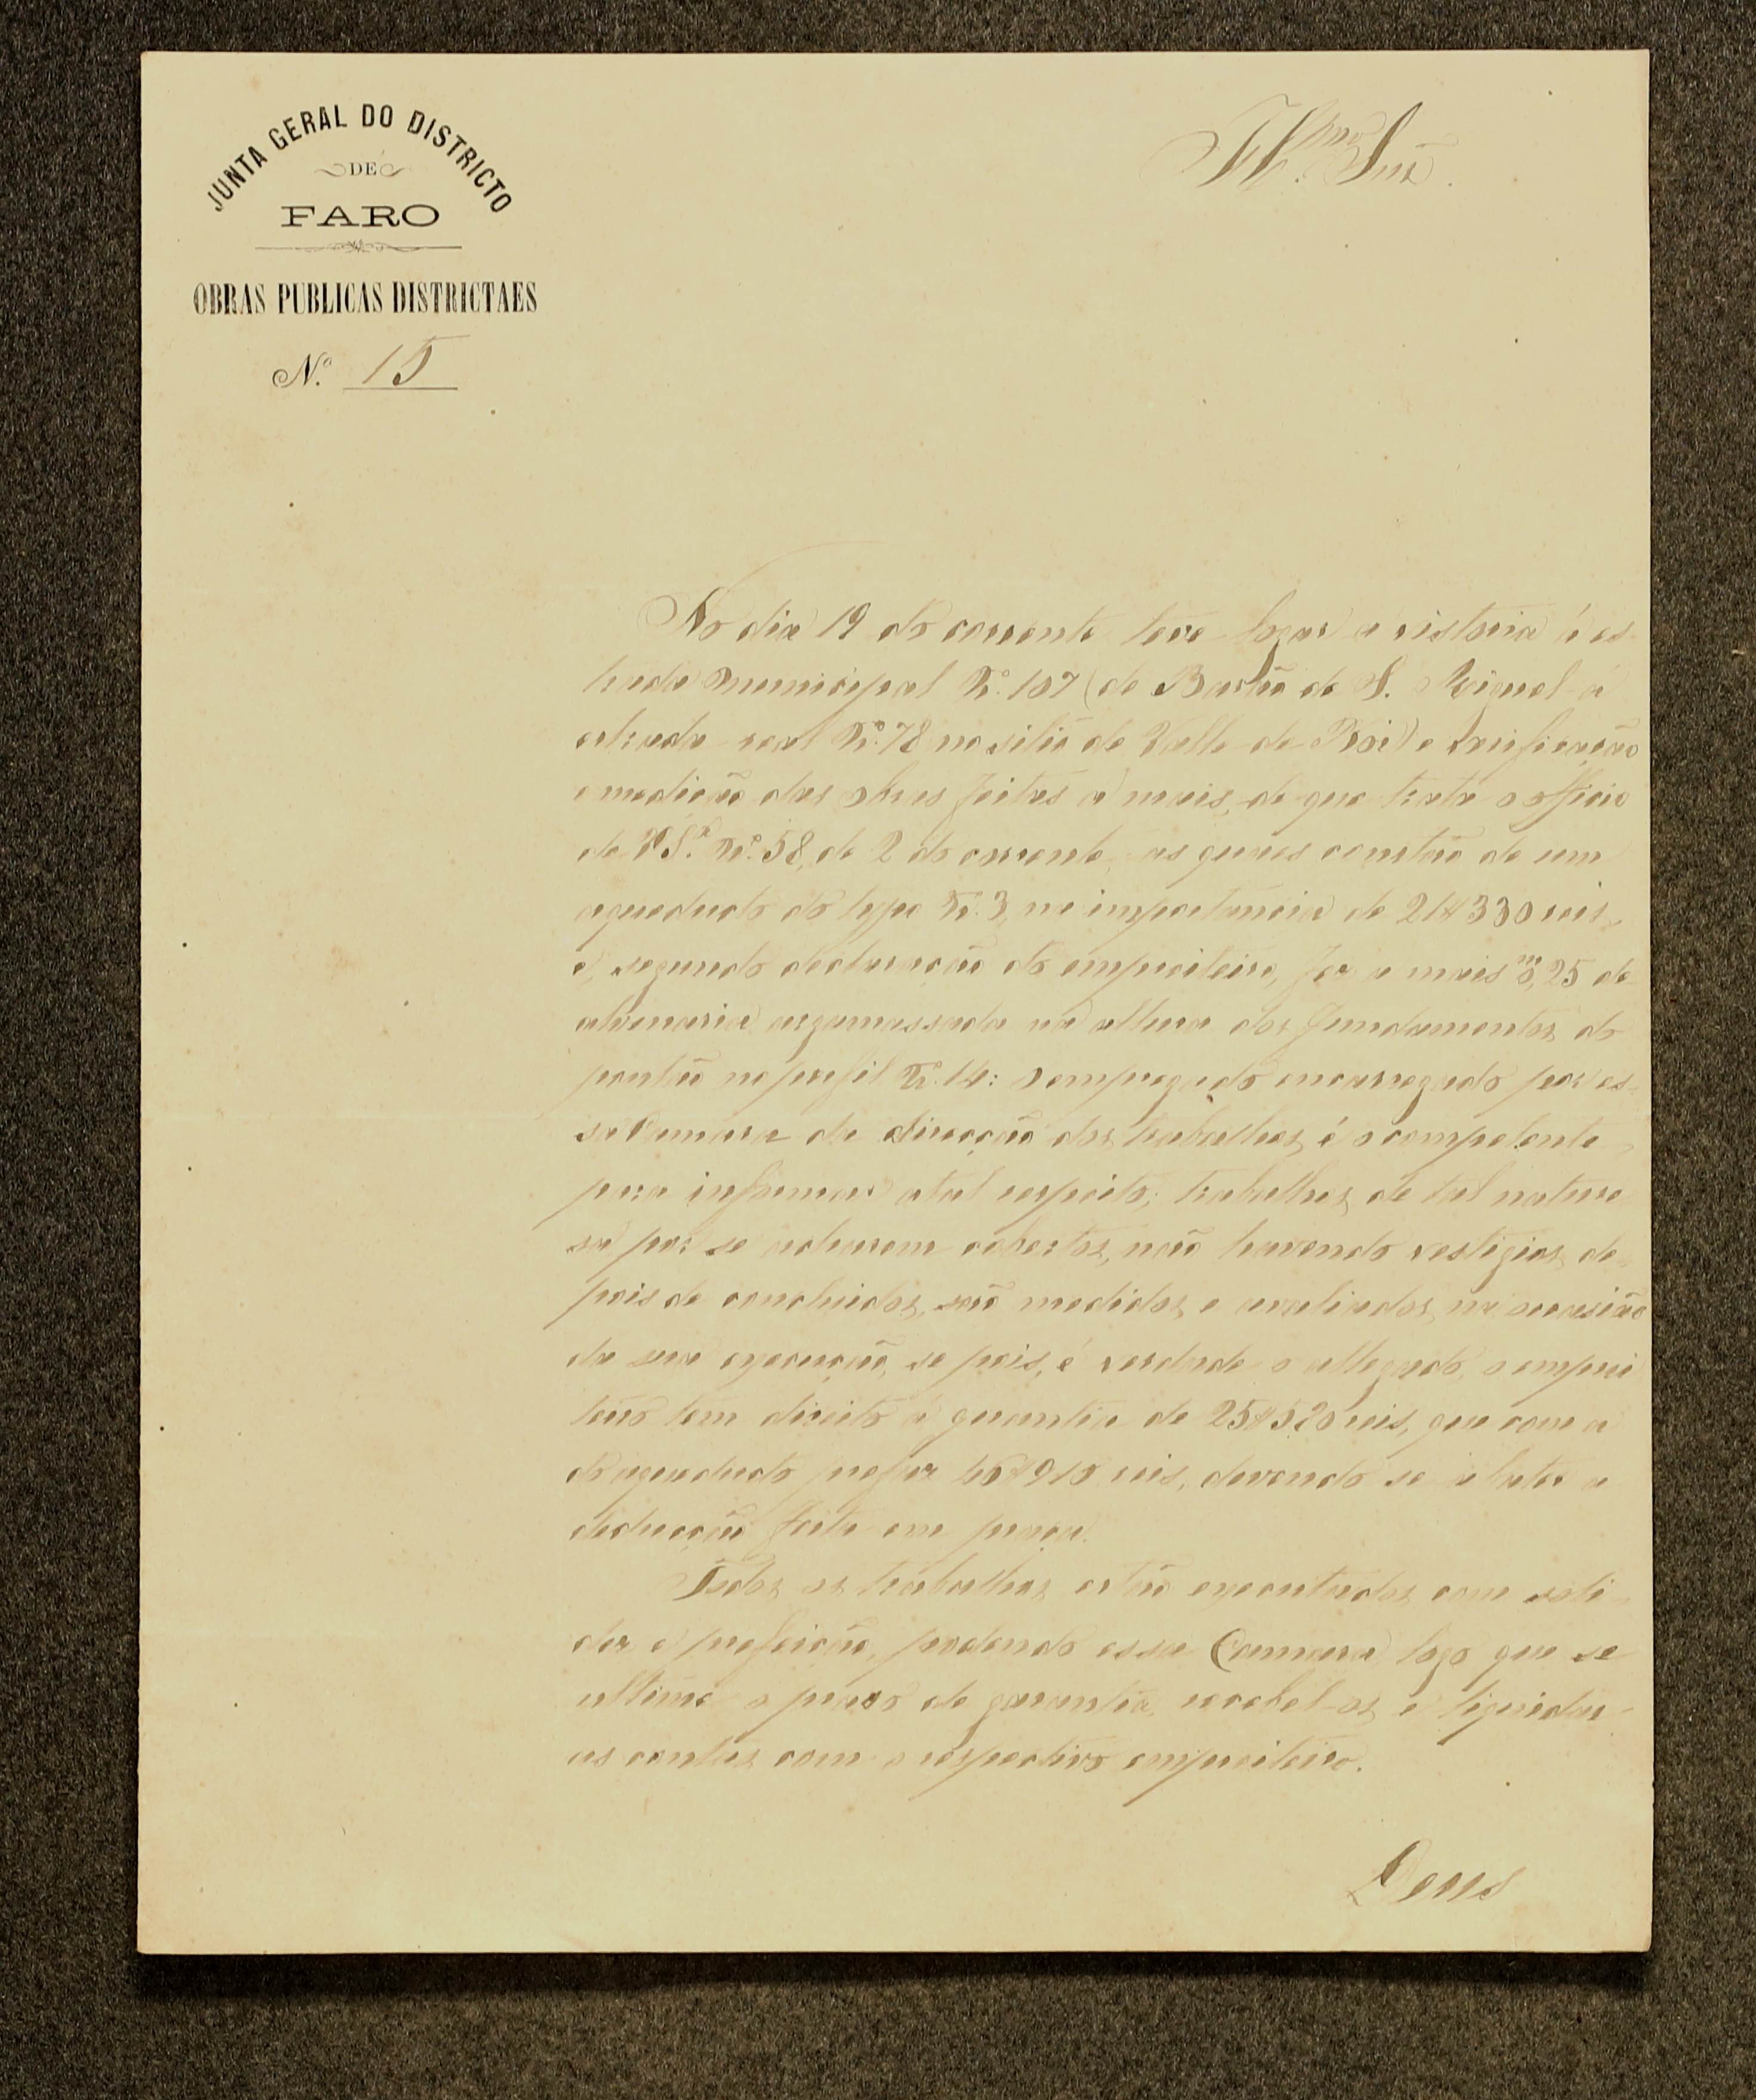 JUNTA GERAL DO DISTRICTO
DE
FARO
OBRAS PUBLICAS DISTRICTAES
N.º 15
Ill.mo Snr.
No dia 19 do corrente teve logar a vistoria á es-
trada municipal Nº. 107 (de Barão de S. Miguel á
estrada real Nº. 78 no sitio de Valle de Boi) e verificação
e medição das obras feitas a mais, de que trata o officio
de V S.ª Nº. 58, de 2 do corrente, as quaes constão de um
aqueducto do typo Nº. 3, na importancia de 21$330 reis
e, segundo declaração do empreiteiro, fez a mais 0,m25 de
alvenaria argamassada na altura dos fundamentos do
pontão no perfil Nº. 14: o empregado encarregado por es-
sa Camara da direcção dos trabalhos é o competente
para informar a tal respeito; trabalhos de tal nature
sa por se acharem cobertos, não havendo vestigios de-
pois de concluidos, são medidos e avaliados na occasião
da sua execução, se pois, é verdade o allegado, o emprei
teiro tem direito á quantia de 25$520 reis, que com a
do aqueducto prefaz 46$910 reis, devendo se abater a
deducção feita em praça.
Todos os trabalhos estão executados com soli-
dez e perfeição, podendo essa Camara logo que se
ultime o praso de garantia, recebel-os e liquidar
as contas com o respectivo empreiteiro.
Deus